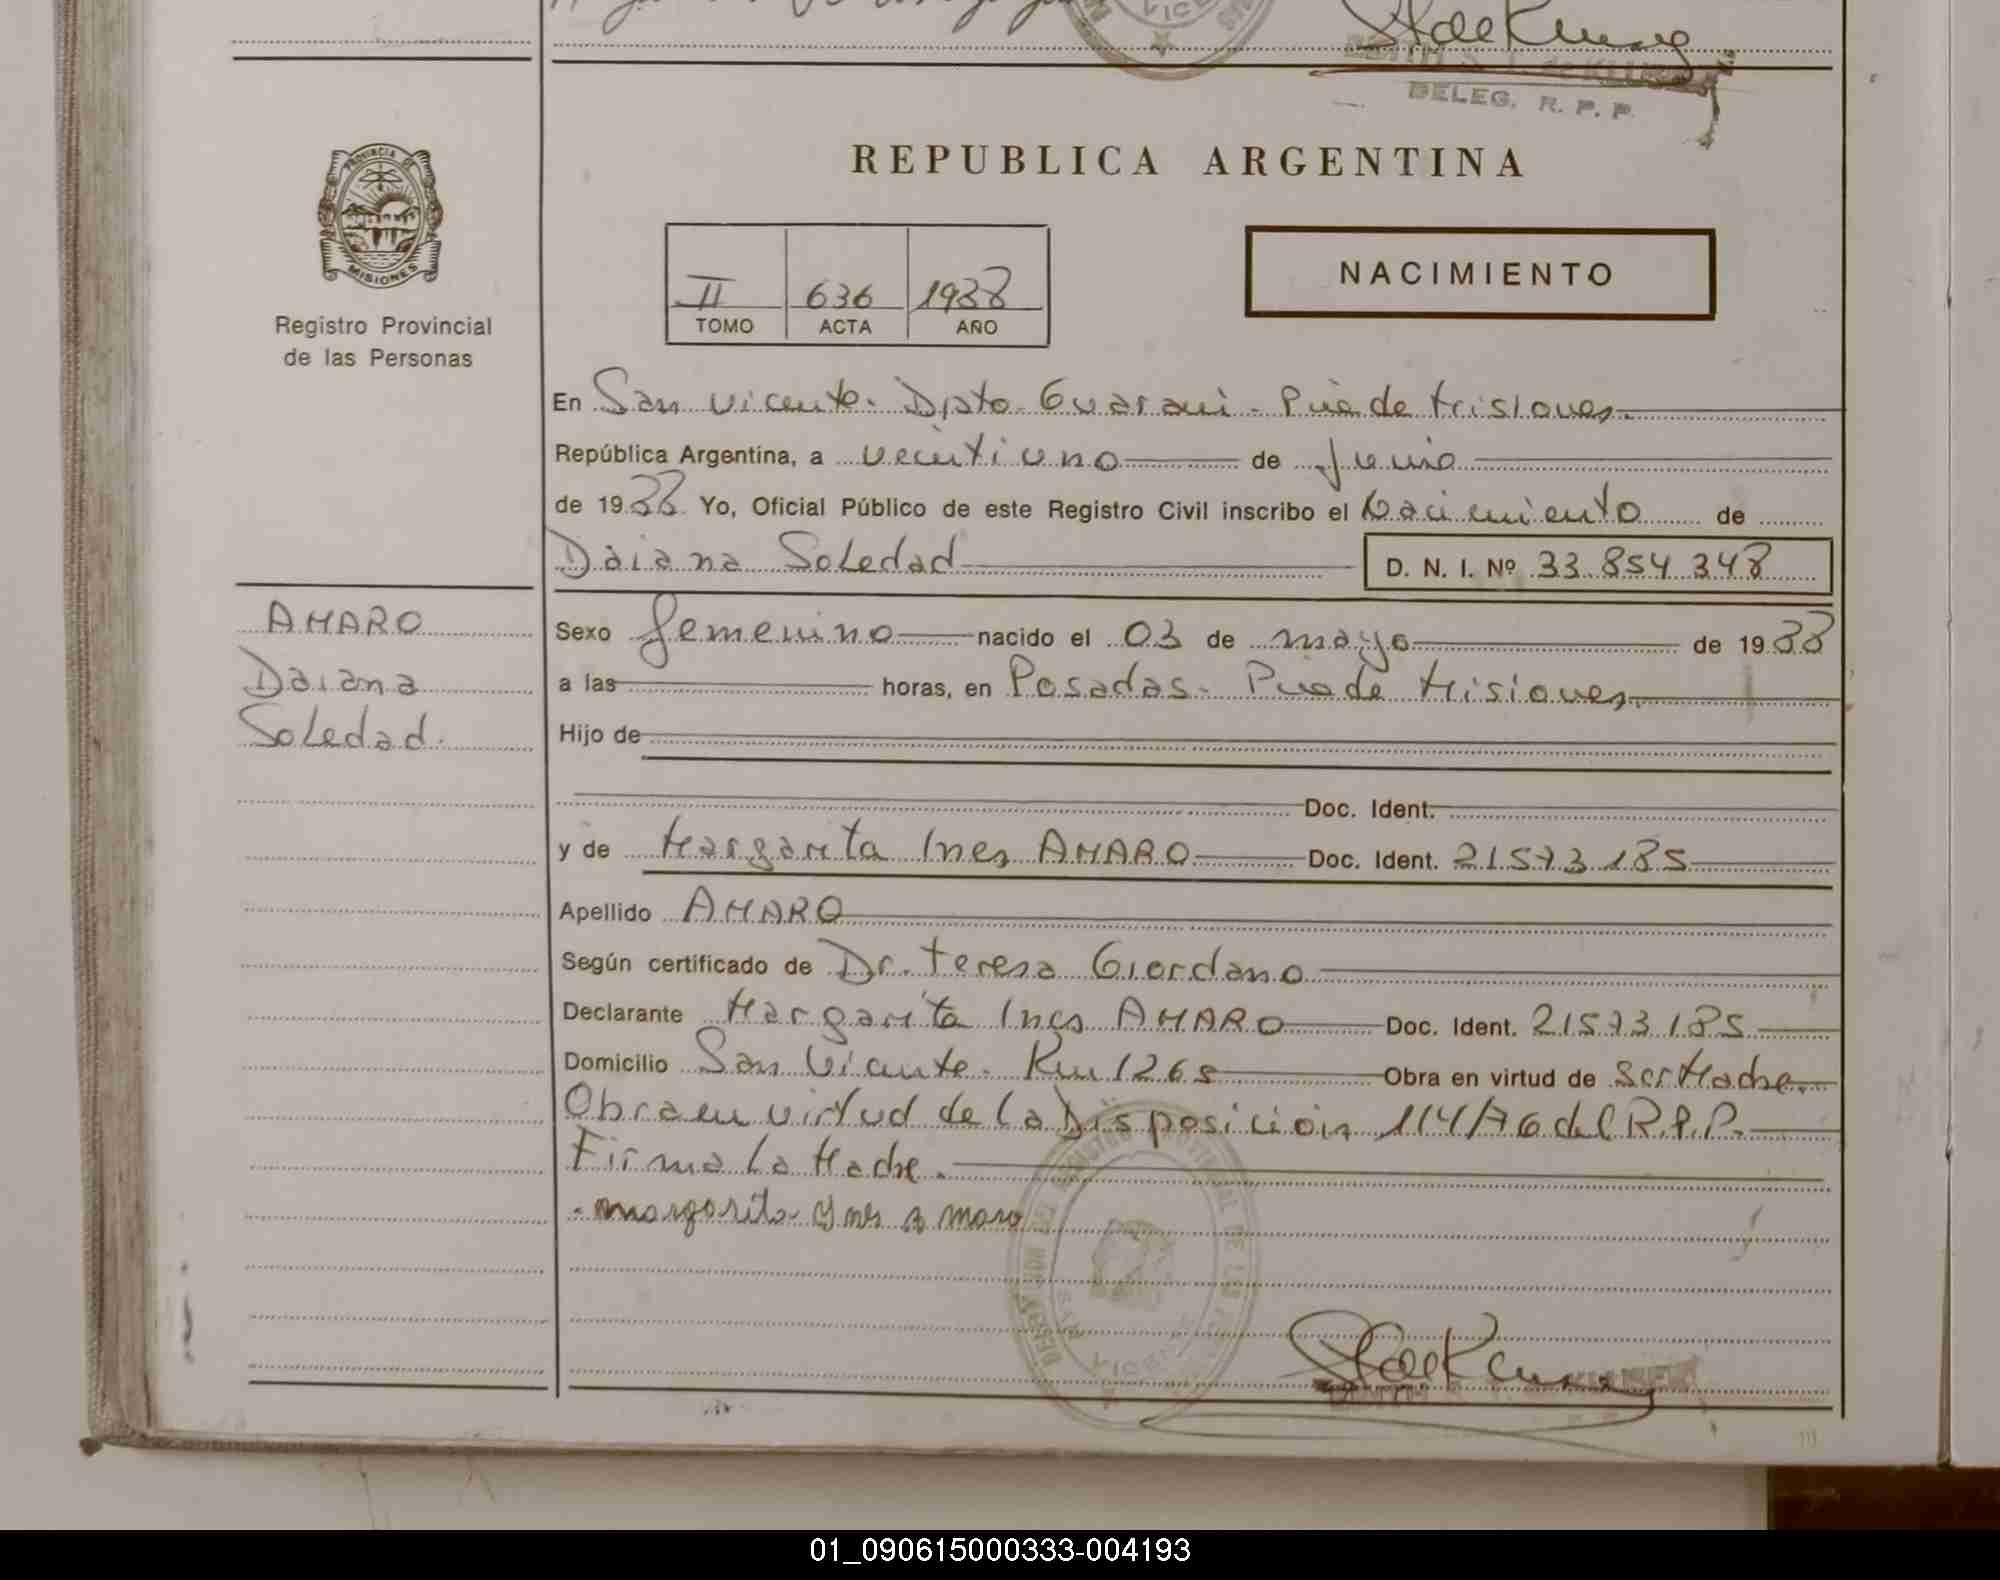 DELEG. R. P. P.
REPUBLICA ARGENTINA
PROVINCIA DE
MISIONES
Registro Provincial
de las Personas
II 636 1988
TOMO ACTA AÑO
NACIMIENTO
En San Vicente. Dpto. Guarani - Pcia de Misiones.
República Argentina, a veintiuno de Junio
de 1988 Yo, Oficial Público de este Registro Civil inscribo el Nacimiento de
Daiana Soledad D. N. I. Nº 33.854.348
AMARO
Daiana
Soledad.
Sexo femenino nacido el 03 de mayo de 1988
a las horas, en Posadas. Pcia de Misiones.
Hijo de
Doc. Ident.
y de Margarita Ines AMARO Doc. Ident. 21573185
Apellido AMARO
Según certificado de Dr. Teresa Giordano
Declarante Margarita Ines AMARO Doc. Ident. 21573185
Domicilio San Vicente. Km 1265 Obra en virtud de Ser Madre.
Obra en virtud de la Disposición 114/76 del R.P.P.
Firma la Madre.
margarita Ynes amaro
01_090615000333-004193